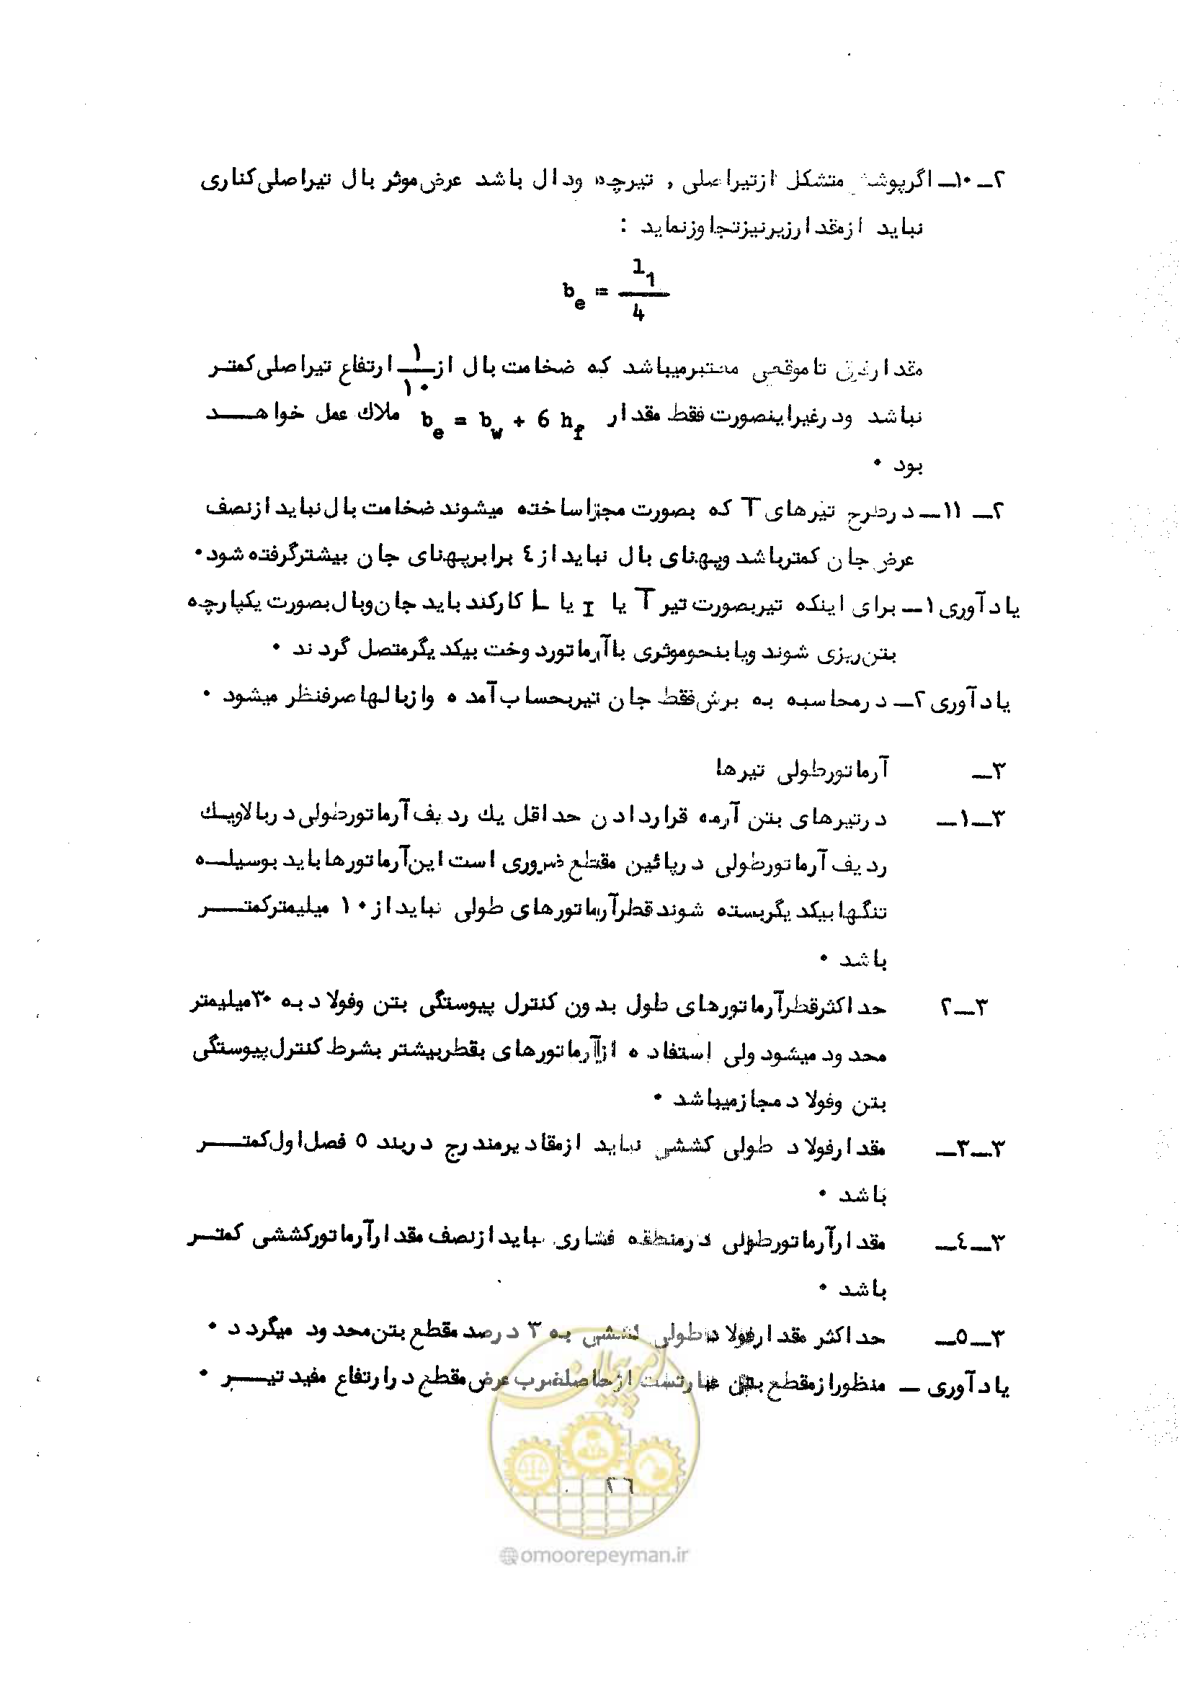 ۲ـ ۱۰ـ اگرپوشش متشکل ازتیراصلی , تیرچه ودال باشد عرض موثر بال تیراصلی کناری
نباید ازمقدارزیرنیزتجاوزنماید :
b_e = l_1 / 4
مقدارفوق تاموقعی معتبرمیباشد که ضخامت بال از ۱/۱۰ ارتفاع تیراصلی کمتـر
نباشد ودرغیراینصورت فقط مقدار b_e = b_w + 6 h_f ملاك عمل خواهـــد
بود .
۲ـ ۱۱ـ درطرح تیرهای T که بصورت مجزا ساخته میشوند ضخامت بال نباید ازنصف
عرض جان کمترباشد وپهنای بال نباید از ٤ برابرپهنای جان بیشترگرفته شود.
یادآوری ۱ـ برای اینکه تیربصورت تیر T یا I یا L کارکند باید جان وبال بصورت یکپارچه
بتن ریزی شوند ویا بنحوموثری باآرماتورد وخت بیکد یگرمتصل گرد ند .
یادآوری ۲ـ درمحاسبه به برش فقط جان تیربحساب آمده وازبالها صرفنظر میشود .
۳ـ آرماتورطولی تیرها
۳ـ۱ـ درتیرهای بتن آرمه قراردادن حداقل یك ردیف آرماتورطولی دربالاویـك
ردیف آرماتورطولی درپائین مقطع ضروری است این آرماتورها باید بوسیلـــه
تنگها بیکدیگربسته شوند قطرآرماتورهای طولی نباید از ۱۰ میلیمترکمتـــــر
باشد .
۳ـ۲ حداکثرقطرآرماتورهای طول بدون کنترل پیوستگی بتن وفولاد به ۳۰میلیمتر
محدود میشود ولی استفاده ازآرماتورهای بقطربیشتر بشرط کنترل پیوستگی
بتن وفولاد مجازمیباشد .
۳ـ۳ـ مقدارفولاد طولی کششی نباید ازمقادیرمندرج دربند ۵ فصل اول کمتـــــر
باشد .
۳ـ٤ـ مقدارآرماتورطولی درمنطقه فشاری نباید ازنصف مقدارآرماتورکششی کمتــر
باشد .
۳ـ۵ـ حداکثر مقدارفولاد طولی کششی به ۳ درصد مقطع بتن محدود میگردد .
یادآوری ـ منظورازمقطع بتن عبارتست ازحاصلضرب عرض مقطع درارتفاع مفید تیـــر .
امور پیمان
۲٦
@omoorepeyman.ir